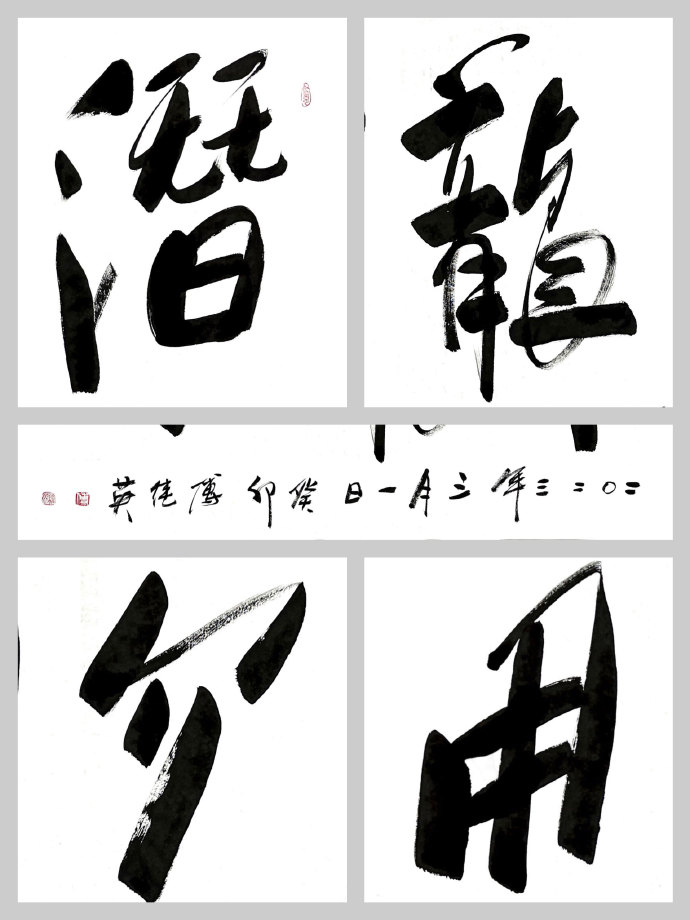 潛龍
二〇二三年三月一日癸卯傅佳英
勿用